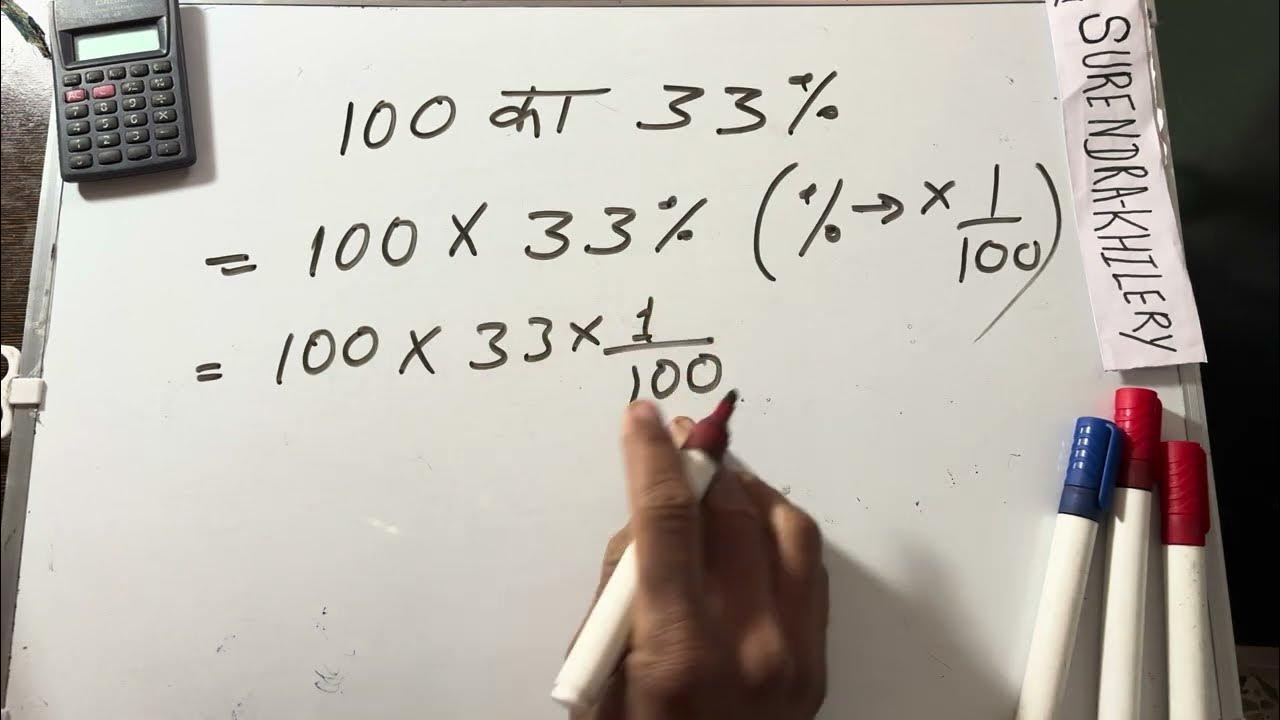 100 का 33%
= 100 × 33% (% → × 1/100)
= 100 × 33 × 1/100
SURENDRA-KHILERY